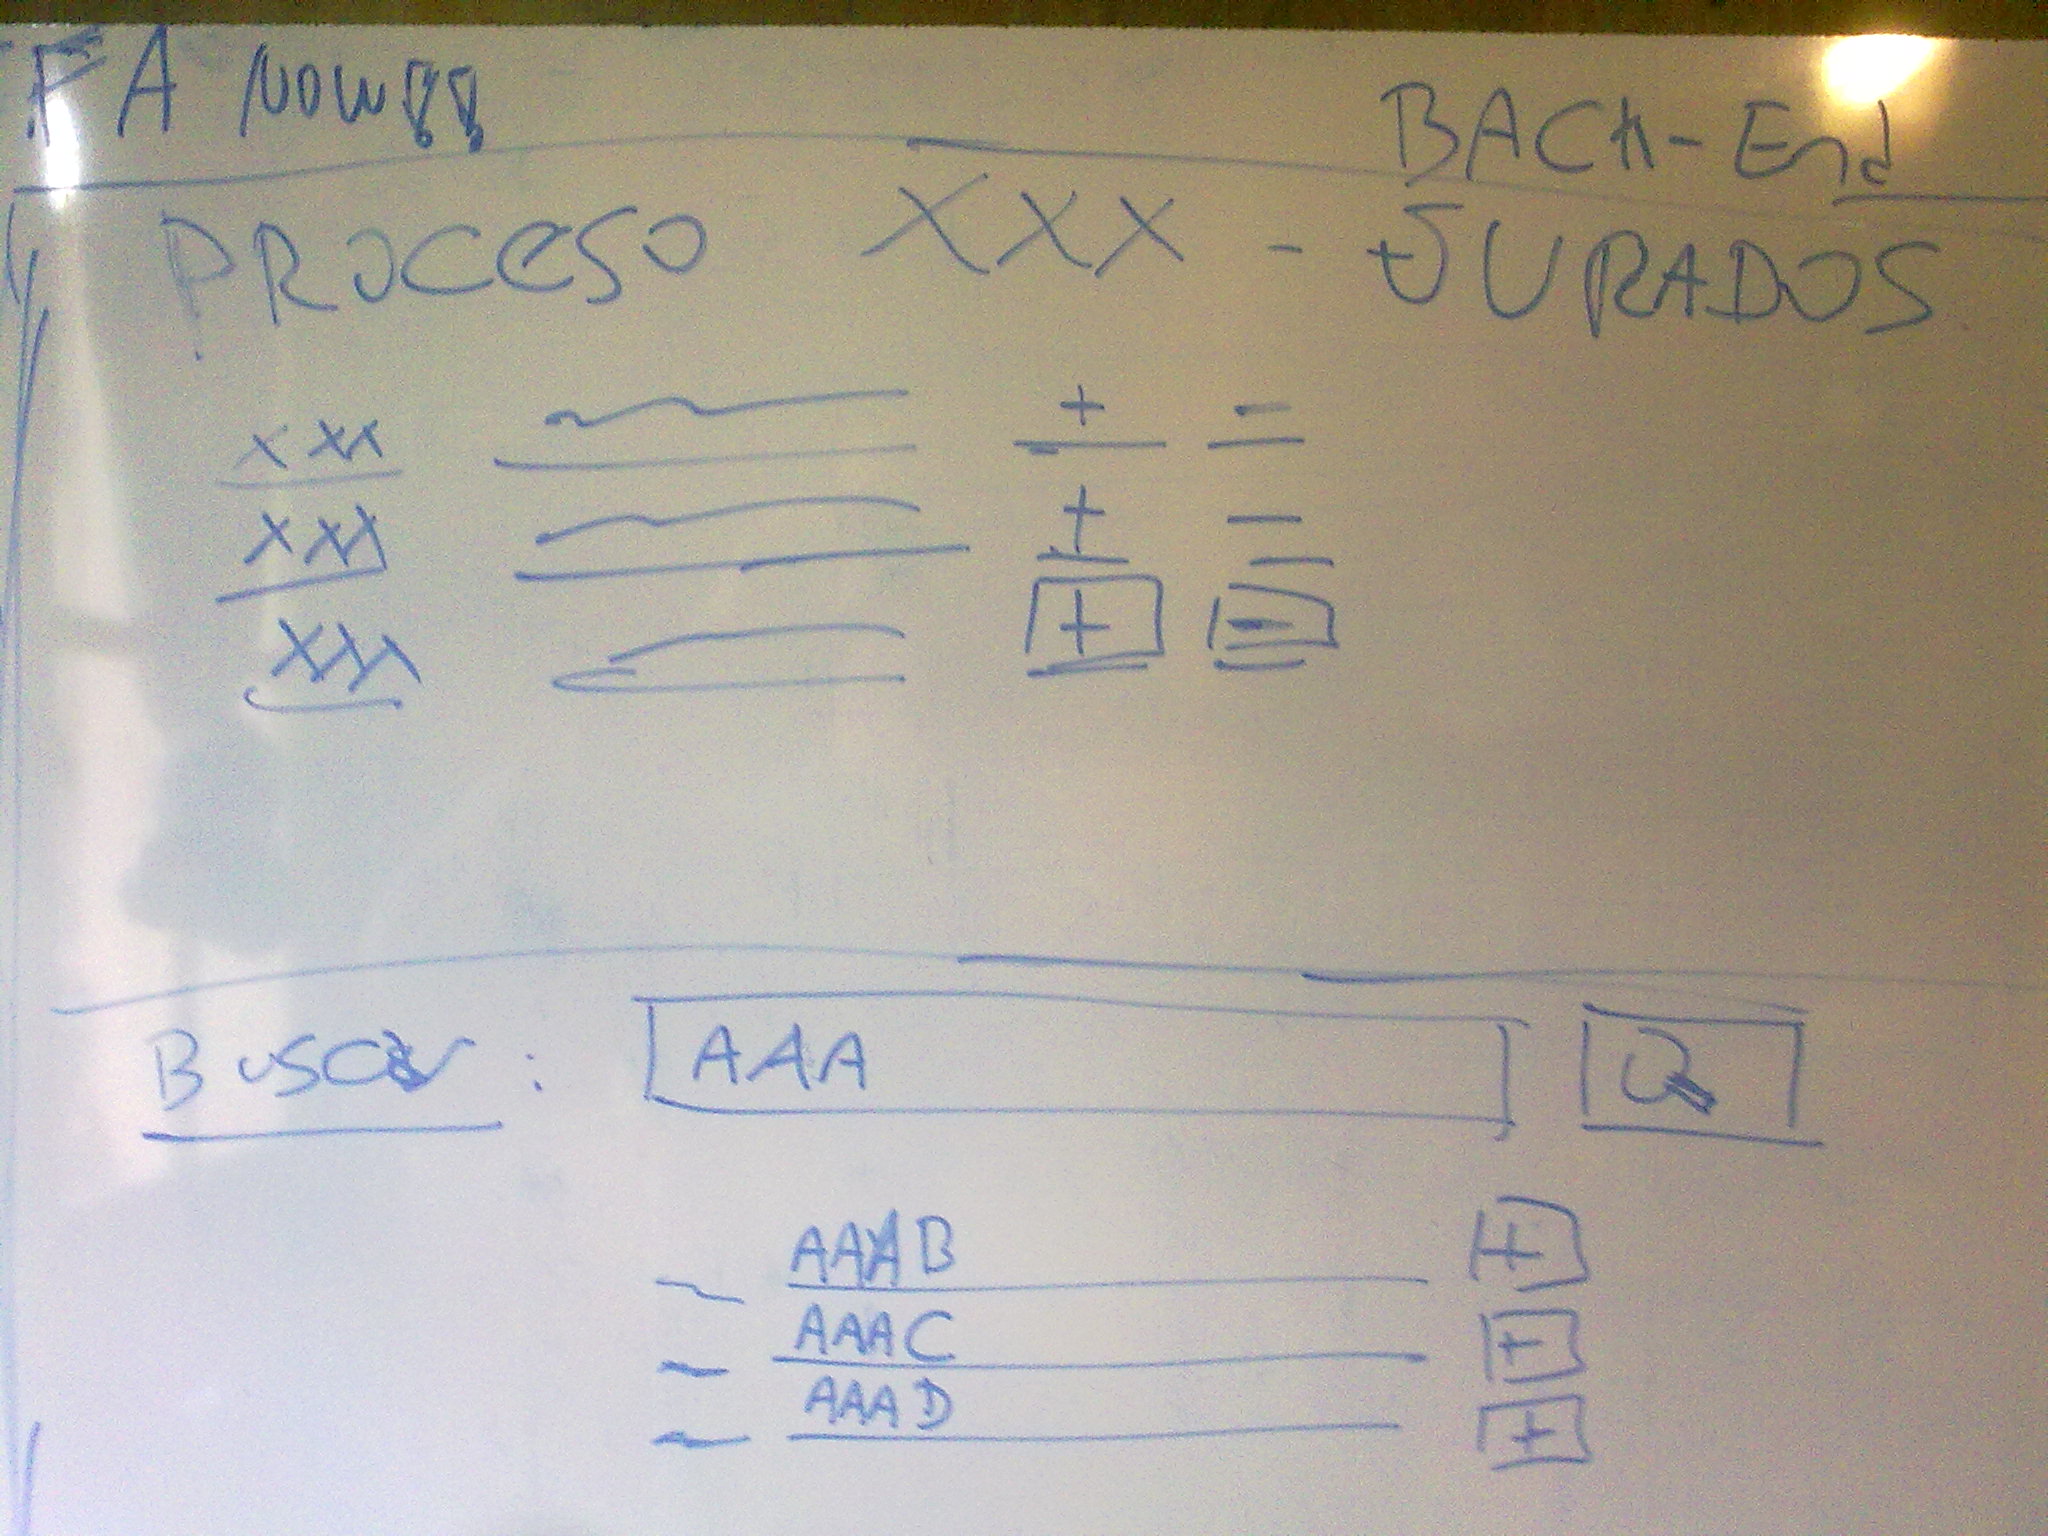 FA NOW!!
BACK-End
PROCESO XXX - JURADOS
XXX + -
XXX + -
XXX + -
Buscar : AAA
AAAB +
AAAC +
AAAD +